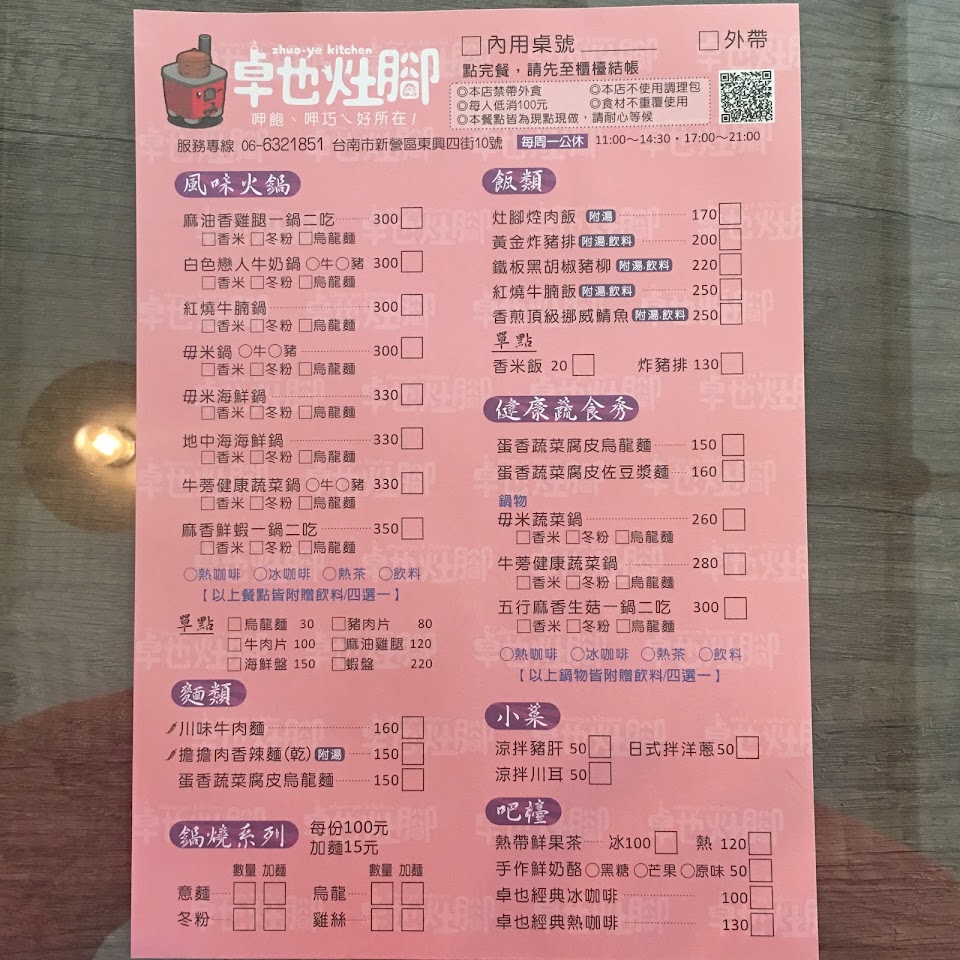 zhuo-ye kitchen
卓也灶腳
呷飽、呷巧ㄟ好所在!
□內用桌號 □外帶
點完餐，請先至櫃檯結帳
◎本店禁帶外食 ◎本店不使用調理包
◎每人低消100元 ◎食材不重覆使用
◎本餐點皆為現點現做，請耐心等候
服務專線 06-6321851 台南市新營區東興四街10號 每周一公休 11:00～14:30・17:00～21:00
風味火鍋
麻油香雞腿一鍋二吃 300 □
□香米 □冬粉 □烏龍麵
白色戀人牛奶鍋 ○牛○豬 300 □
□香米 □冬粉 □烏龍麵
紅燒牛腩鍋 300 □
□香米 □冬粉 □烏龍麵
毋米鍋 ○牛○豬 300 □
□香米 □冬粉 □烏龍麵
毋米海鮮鍋 330 □
□香米 □冬粉 □烏龍麵
地中海海鮮鍋 330 □
□香米 □冬粉 □烏龍麵
牛蒡健康蔬菜鍋 ○牛○豬 330 □
□香米 □冬粉 □烏龍麵
麻香鮮蝦一鍋二吃 350 □
□香米 □冬粉 □烏龍麵
○熱咖啡 ○冰咖啡 ○熱茶 ○飲料
【以上餐點皆附贈飲料/四選一】
單點 □烏龍麵 30 □豬肉片 80
□牛肉片 100 □麻油雞腿 120
□海鮮盤 150 □蝦盤 220
麵類
川味牛肉麵 160 □
擔擔肉香辣麵(乾) 附湯 150 □
蛋香蔬菜腐皮烏龍麵 150 □
鍋燒系列 每份100元
加麵15元
數量 加麵 數量 加麵
意麵 □ □ 烏龍 □ □
冬粉 □ □ 雞絲 □ □
飯類
灶腳焢肉飯 附湯 170 □
黃金炸豬排 附湯.飲料 200 □
鐵板黑胡椒豬柳 附湯.飲料 220 □
紅燒牛腩飯 附湯.飲料 250 □
香煎頂級挪威鯖魚 附湯.飲料 250 □
單點
香米飯 20 □ 炸豬排 130 □
健康蔬食秀
蛋香蔬菜腐皮烏龍麵 150 □
蛋香蔬菜腐皮佐豆漿麵 160 □
鍋物
毋米蔬菜鍋 260 □
□香米 □冬粉 □烏龍麵
牛蒡健康蔬菜鍋 280 □
□香米 □冬粉 □烏龍麵
五行麻香生菇一鍋二吃 300 □
□香米 □冬粉 □烏龍麵
○熱咖啡 ○冰咖啡 ○熱茶 ○飲料
【以上鍋物皆附贈飲料/四選一】
小菜
涼拌豬肝 50 □ 日式拌洋蔥 50 □
涼拌川耳 50 □
吧檯
熱帶鮮果茶 冰100 □ 熱 120 □
手作鮮奶酪 ○黑糖 ○芒果 ○原味 50 □
卓也經典冰咖啡 100 □
卓也經典熱咖啡 130 □